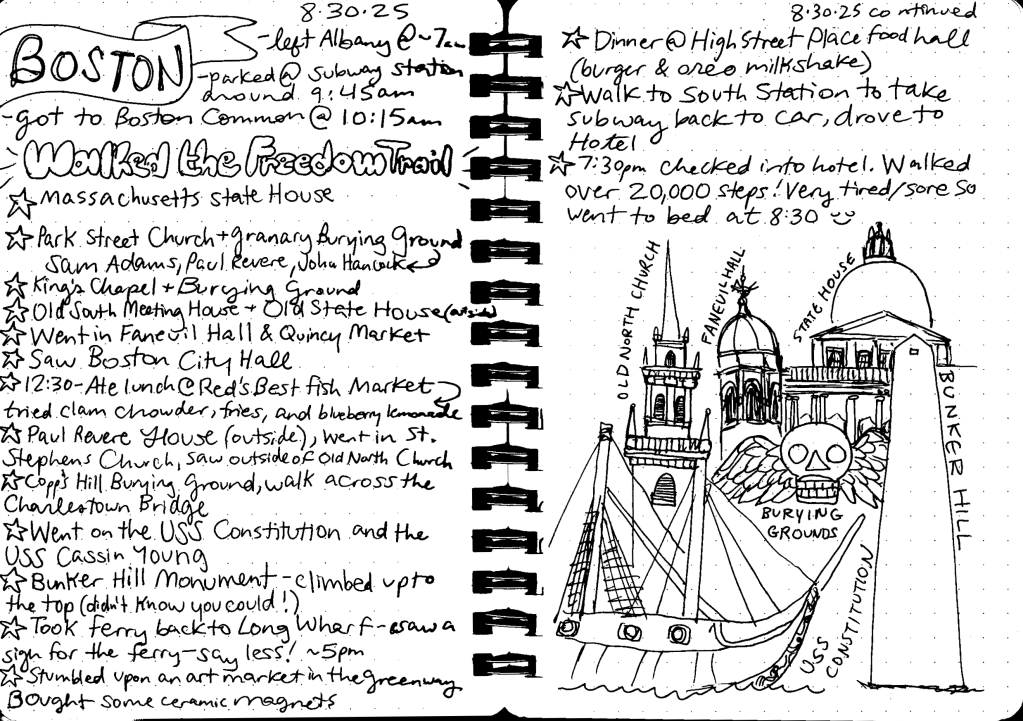 8.30.25
BOSTON
-left Albany @ ~7am
-parked @ subway station
around 9:45am
-got to Boston Common @ 10:15am
Walked the Freedom Trail
☆ Massachusetts State House
☆ Park Street Church + Granary Burying Ground
Sam Adams, Paul Revere, John Hancock
☆ King's Chapel + Burying Ground
☆ Old South Meeting House + Old State House (outside)
☆ Went in Faneuil Hall & Quincy Market
☆ Saw Boston City Hall
☆ 12:30-Ate lunch @ Red's Best fish Market
tried clam chowder, fries, and blueberry lemonade
☆ Paul Revere House (outside), went in St.
Stephens Church, saw outside of Old North Church
☆ Copp's Hill Burying Ground, walk across the
Charlestown Bridge
☆ Went on the USS Constitution and the
USS Cassin Young
☆ Bunker Hill Monument - climbed up to
the top (didn't know you could!)
☆ Took ferry back to Long Wharf - saw a
sign for the ferry-say less! ~5pm
☆ Stumbled upon an art market in the greenway
Bought some ceramic magnets
8.30.25 continued
☆ Dinner @ High Street Place food hall
(burger & oreo milkshake)
☆ Walk to South Station to take
subway back to car, drove to
Hotel
☆ 7:30pm checked into hotel. Walked
over 20,000 steps! Very tired/sore so
went to bed at 8:30
OLD NORTH CHURCH
FANEUIL HALL
STATE HOUSE
BUNKER HILL
BURYING
GROUNDS
USS
CONSTITUTION